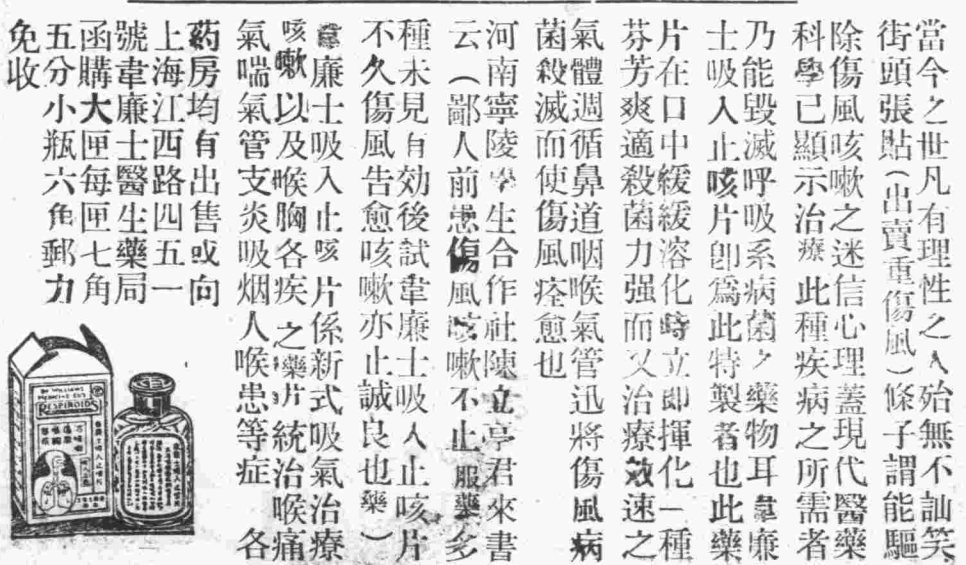 當今之世凡有理性之人殆無不訕笑
街頭張貼(出賣重傷風)條子謂能驅
除傷風咳嗽之迷信心理蓋現代醫藥
科學已顯示治療此種疾病之所需者
乃能毀滅呼吸系病菌之藥物耳韋廉
士吸入止咳片卽爲此特製者也此藥
片在口中緩緩溶化時立即揮化一種
芬芳爽適殺菌力强而又治療效速之
氣體週循鼻道咽喉氣管迅將傷風病
菌殺滅而使傷風痊愈也
河南寧陵學生合作社陳立亭君來書
云(鄙人前患傷風咳嗽不止服藥多
種未見有効後試韋廉士吸入止咳片
不久傷風告愈咳嗽亦止誠良也藥)
韋廉士吸入止咳片係新式吸氣治療
咳嗽以及喉胸各疾之藥片統治喉痛
氣喘氣管支炎吸烟人喉患等症 各
葯房均有出售或向
上海江西路四五一
號韋廉士醫生藥局
函購大匣每匣七角
五分小瓶六角郵力
免收
DR. WILLIAMS
RESPIROIDS